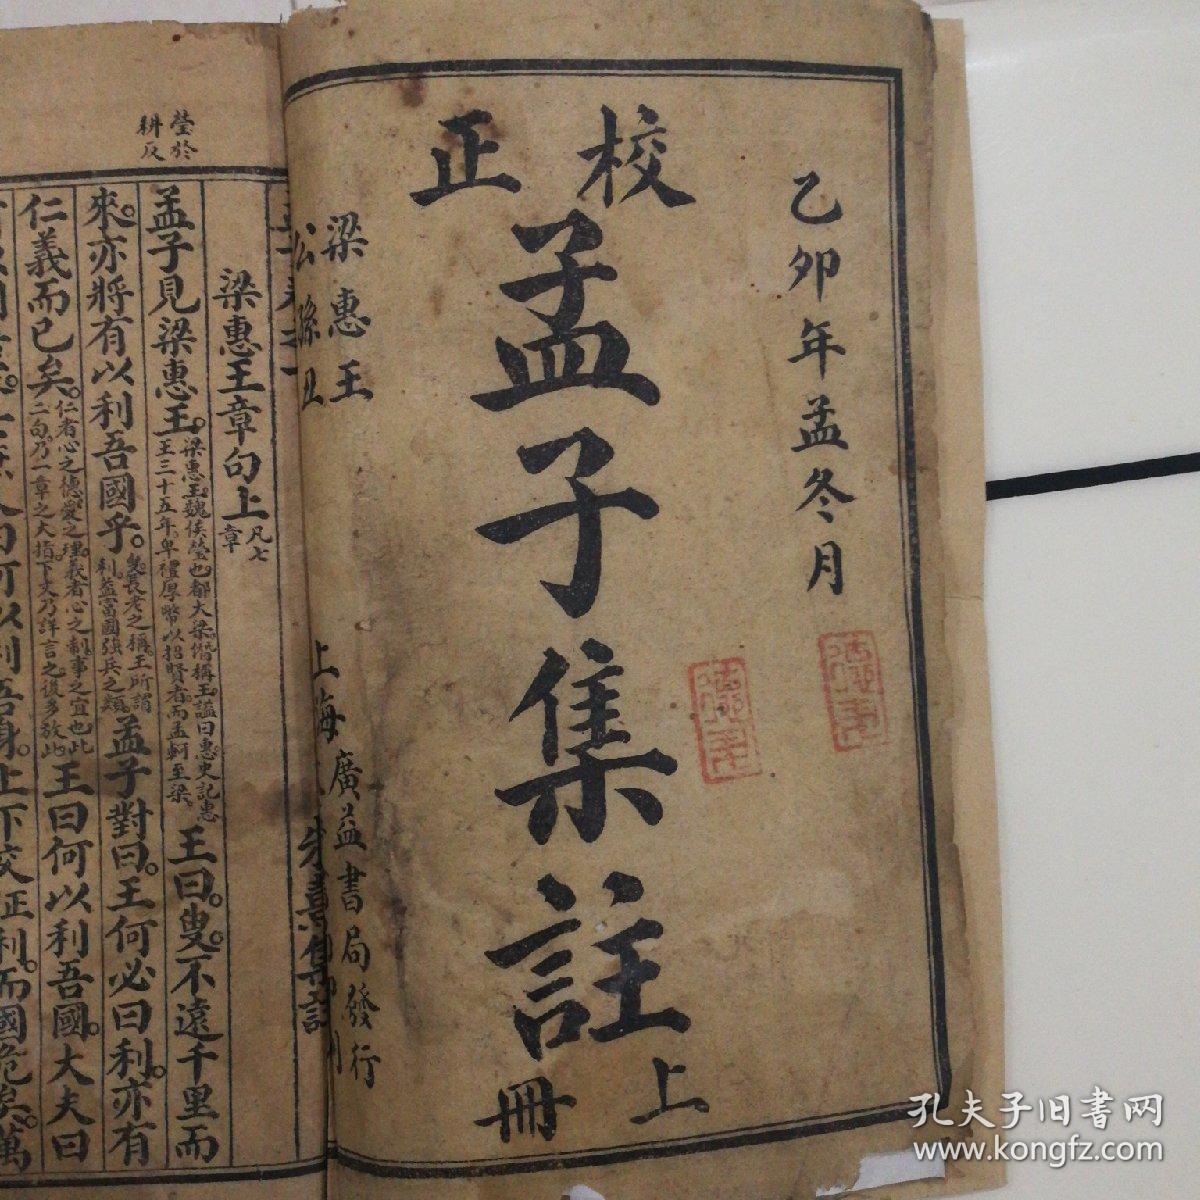 乙卯年孟冬月
校正
孟子集註
上冊
梁惠王
公孫丑
上海
廣益書局發行
朱熹集註
梁惠王章句上凡七章
孟子見梁惠王。梁惠王魏侯罃也都大梁僭稱王諡曰惠史記惠王三十五年卑禮厚幣以招賢者而孟軻至梁王曰。叟。不遠千里而
來。亦將有以利吾國乎。叟長老之稱王所謂利蓋富國强兵之類孟子對曰。王何必曰利。亦有
仁義而已矣。仁者心之德愛之理義者心之制事之宜也此二句乃一章之大指下文乃詳言之後多放此王曰何以利吾國。大夫曰
何以利吾身。上下交征利。而國危矣。萬
罃於
耕反
孔夫子旧书网
www.kongfz.com